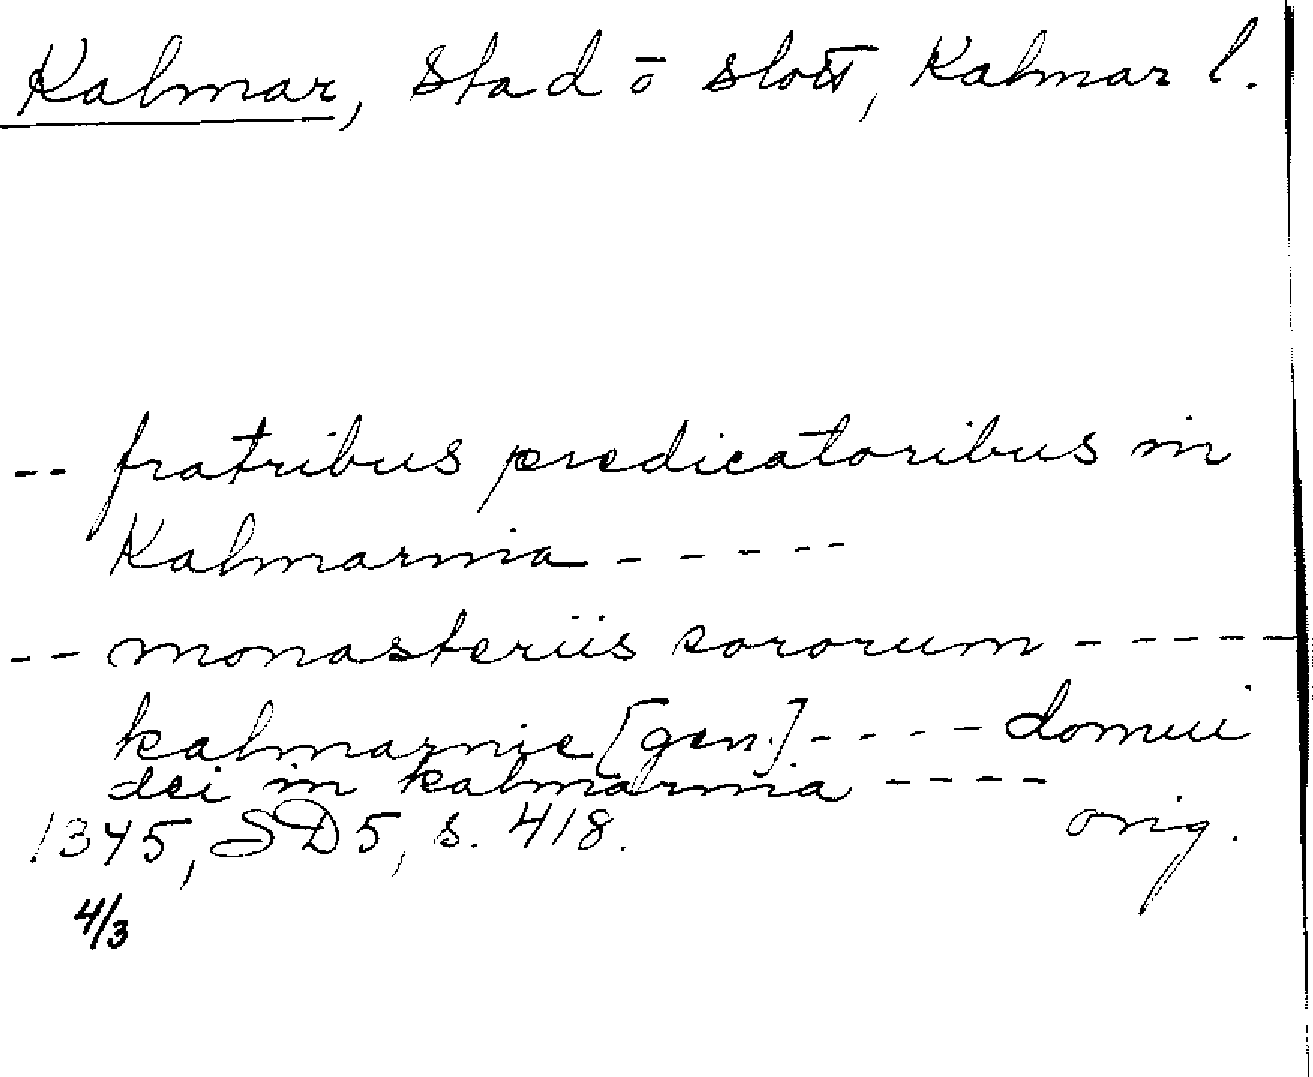 Kalmar, stad ō slott, Kalmar l.
-- fratribus predicatoribus in
Kalmarnia -----
-- monasteriis sororum -----
kalmarnie [gen.] ---- domui
dei in kalmarnia ----
1345, SD5, s. 418. orig.
4/3